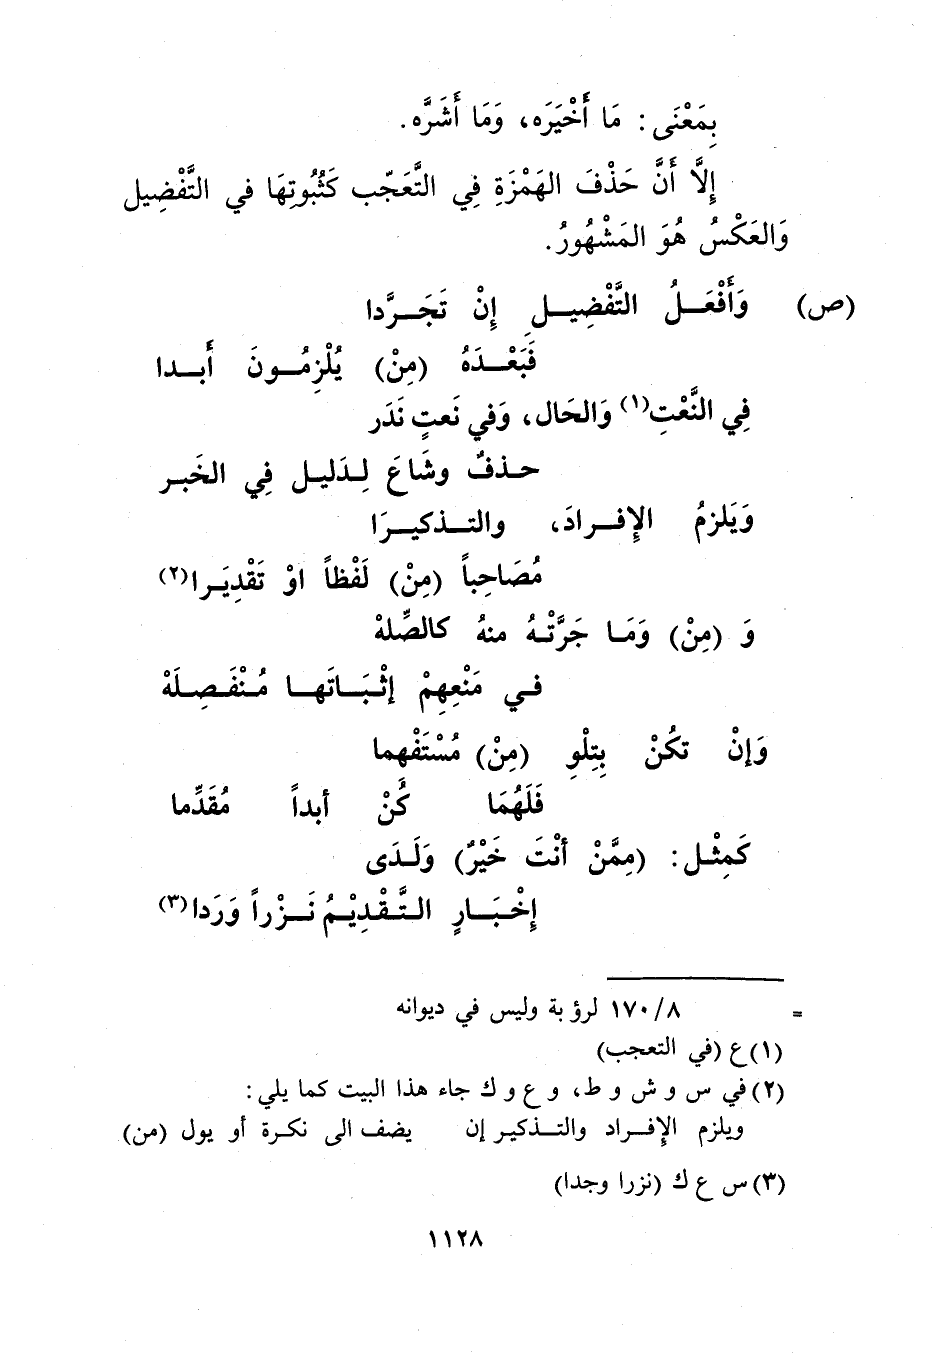 بِمَعْنَى: مَا أَخْيَرَه، وَمَا أَشَرَّه.
إِلَّا أَنَّ حَذْفَ الهَمْزَةِ فِي التَّعَجّب كَثُبُوتِهَا في التَّفْضِيل
وَالعَكْسُ هُوَ المَشْهُورُ.
(ص) وَأَفْعَلُ التَّفْضِيلِ إِنْ تَجَرَّدا
فَبَعْدَهُ (مِنْ) يُلْزِمُونَ أَبدا
فِي النَّعْتِ(١) وَالحَال، وَفي نَعتٍ نَدَر
حذفٌ وشَاعَ لِدَليل فِي الخَبر
وَيَلزمُ الإِفرادَ، والتذكيرَا
مُصَاحِباً (مِنْ) لَفْظاً اوْ تَقْدِيَرا(٢)
وَ (مِنْ) وَمَا جَرَّتْهُ منهُ كالصِّلهْ
في مَنْعِهِمْ إثْبَاتَها مُنْفَصِلَهْ
وَإنْ تكُنْ بِتِلْوِ (مِنْ) مُسْتَفْهِما
فَلَهُمَا كُنْ أبداً مُقَدِّما
كَمِثْل: (مِمَّنْ أنْتَ خَيْرٌ) وَلَدَى
إِخْبَارٍ التَّقْدِيْمُ نَزْراً وَرَدا(٣)
= ١٧٠/٨ لرؤبة وليس في ديوانه
(١) ع (في التعجب)
(٢) في س و ش و ط، و ع و ك جاء هذا البيت كما يلي:
ويلزم الإفراد والتذكير إن يضف الى نكرة أو يول (من)
(٣) س ع ك (نزرا وجدا)
١١٢٨